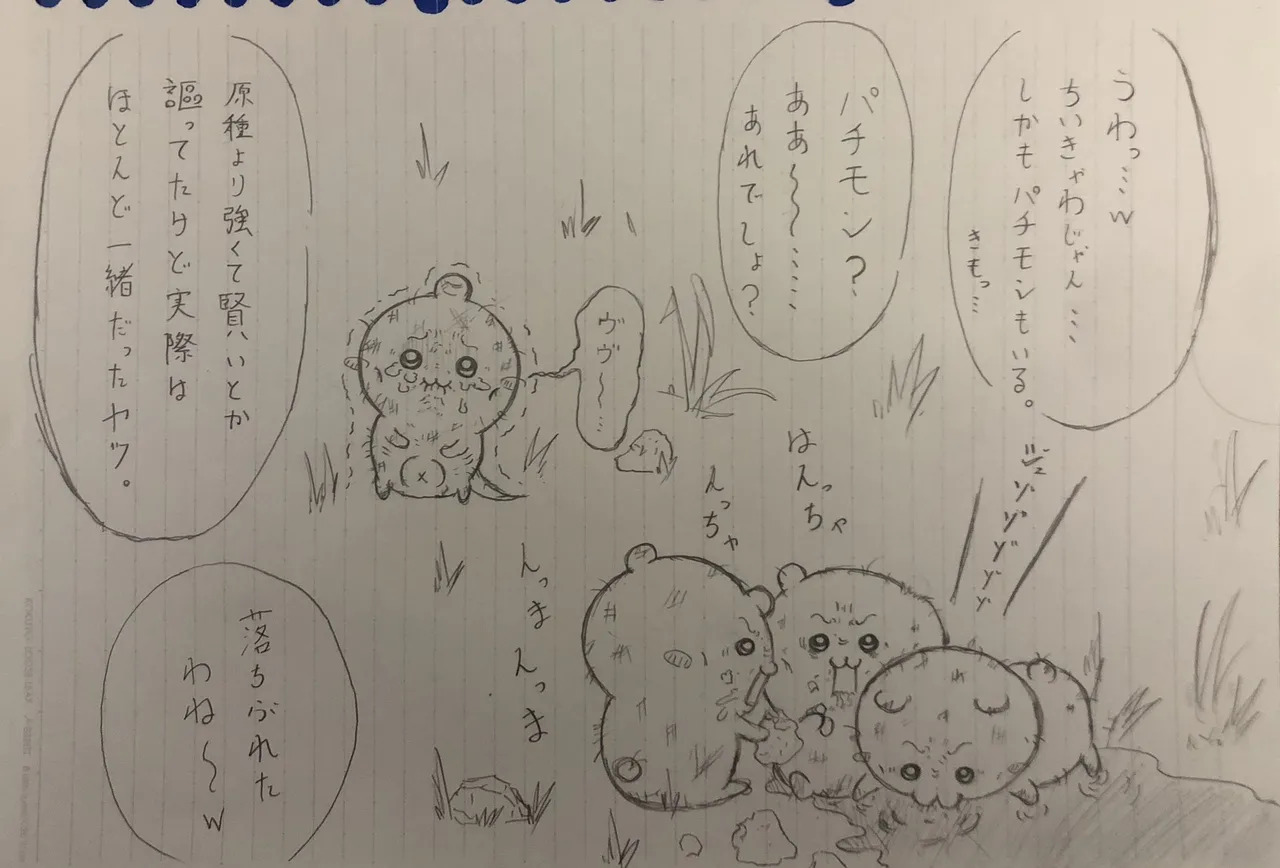 うわっ…w
ちいきゃわじゃん…
しかもパチモンもいる。
きもっ…
パチモン?
ああ〜〜……
あれでしょ?
ヴヴ〜…
原種より強くて賢いとか
謳ってたけど実際は
ほとんど一緒だったヤツ。
ジュゾゾゾゾゾ
はんっちゃ
んっちゃ
んっまんっま
落ちぶれた
わね〜w